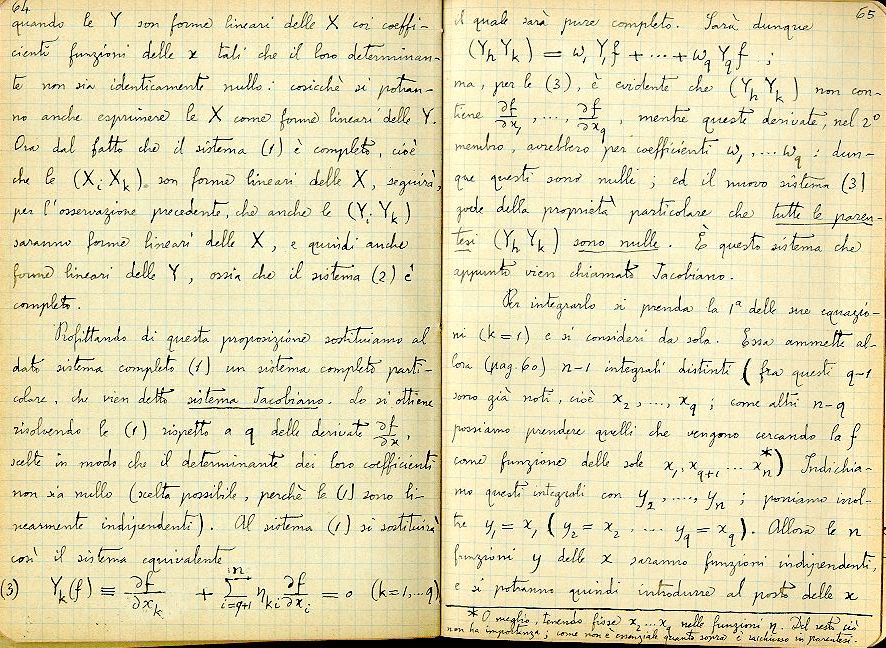 64
quando le Y son forme lineari delle X coi coeffi-
cienti funzioni delle x tali che il loro determinan-
te non sia identicamente nullo: cosicchè si potran-
no anche esprimere le X come forme lineari delle Y.
Ora dal fatto che il sistema (1) è completo, cioè
che le (X_i X_k) son forme lineari delle X, seguirà,
per l'osservazione precedente, che anche le (Y_i Y_k)
saranno forme lineari delle X, e quindi anche
forme lineari delle Y, ossia che il sistema (2) è
completo.
Profittando di questa proposizione sostituiamo al
dato sistema completo (1) un sistema completo parti-
colare, che vien detto sistema Jacobiano. Lo si ottiene
risolvendo le (1) rispetto a q delle derivate ∂f/∂x,
scelte in modo che il determinante dei loro coefficienti
non sia nullo (scelta possibile, perchè le (1) sono li-
nearmente indipendenti). Al sistema (1) si sostituirà
così il sistema equivalente
(3) Y_k(f) ≡ ∂f/∂x_k + Σ_{i=q+1}^{n} η_{ki} ∂f/∂x_i = 0 (k=1,..q)
65
il quale sarà pure completo. Sarà dunque
(Y_h Y_k) = ω_1 Y_1 f + ... + ω_q Y_q f ;
ma, per le (3), è evidente che (Y_h Y_k) non con-
tiene ∂f/∂x_1, ..., ∂f/∂x_q, mentre queste derivate, nel 2º
membro, avrebbero per coefficienti ω_1, ... ω_q : dun-
que questi sono nulli ; ed il nuovo sistema (3)
gode della proprietà particolare che tutte le paren-
tesi (Y_h Y_k) sono nulle. È questo sistema che
appunto vien chiamato Jacobiano.
Per integrarlo si prenda la 1ª delle sue equazio-
ni (k=1) e si consideri da sola. Essa ammette al-
lora (pag. 60) n-1 integrali distinti (fra questi q-1
sono già noti, cioè x_2, ..., x_q ; come altri n-q
possiamo prendere quelli che vengono cercando la f
come funzione delle sole x_1, x_{q+1} ... x_n*) Indichia-
mo questi integrali con y_2, ..., y_n ; poniamo inol-
tre y_1 = x_1 (y_2 = x_2 .... y_q = x_q). Allora le n
funzioni y delle x saranno funzioni indipendenti,
e si potranno quindi introdurre al posto delle x
* O meglio, tenendo fisse x_2 ... x_q nelle funzioni η. Del resto ciò
non ha importanza ; come non è essenziale quanto sopra è racchiuso in parentesi.